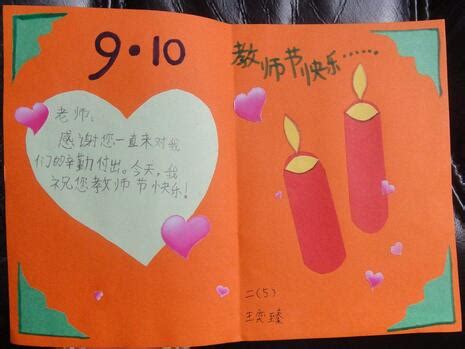 9·10
老师:
感谢您一直来对我
们的辛勤付出。今天,我
祝您教师节快乐!
教师节快乐······
二(5)
王奕臻